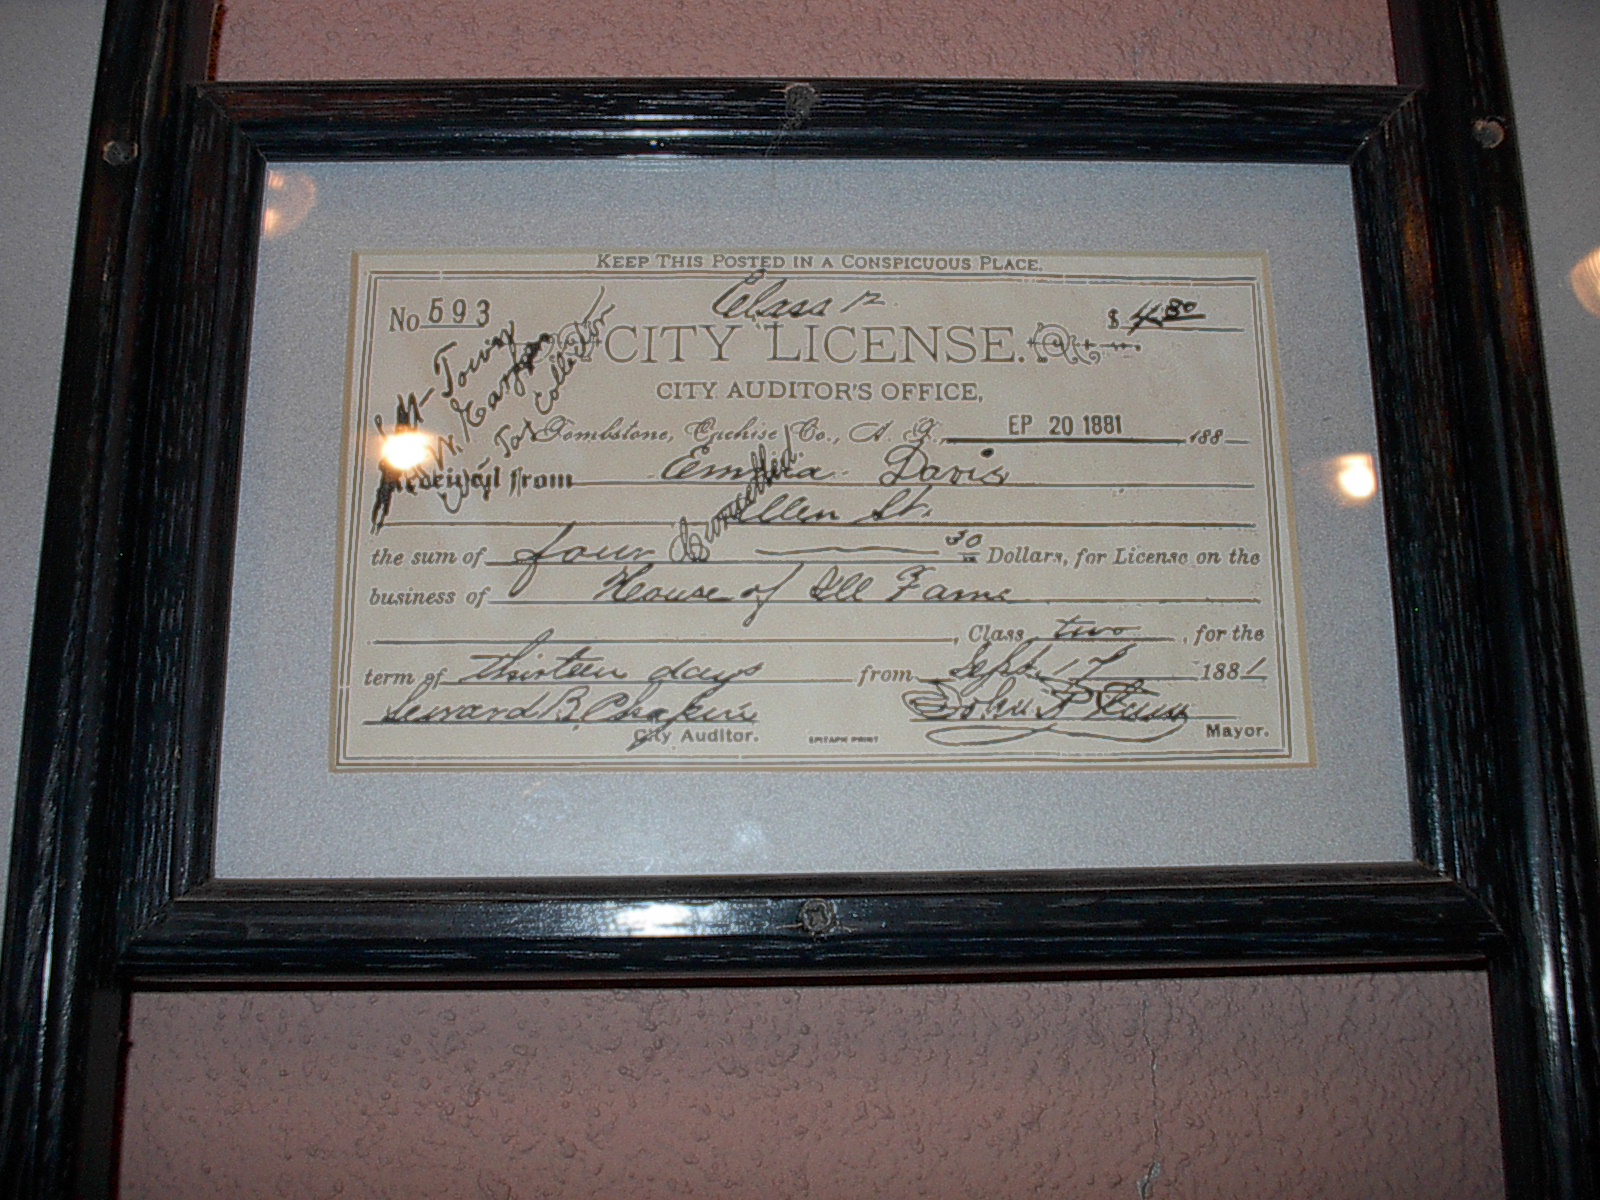 KEEP THIS POSTED IN A CONSPICUOUS PLACE.
No 593
Class 2.
$ 4.30
CITY LICENSE.
CITY AUDITOR'S OFFICE,
Tombstone, Cochise Co., A. T., EP 20 1881 188
Received from Emma Davis
Allen St.
Cancelled
the sum of four 30 Dollars, for License on the
business of House of Ill Fame
, Class two , for the
term of thirteen days from Sept. 17 1881
Seward B. Chapin
John P. Clum
City Auditor.
EPITAPH PRINT
Mayor.
City Tax Collector